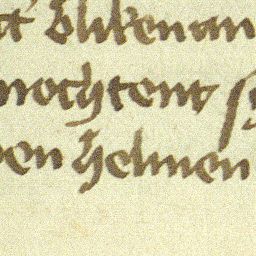 bliken an
mochtent
den helmen